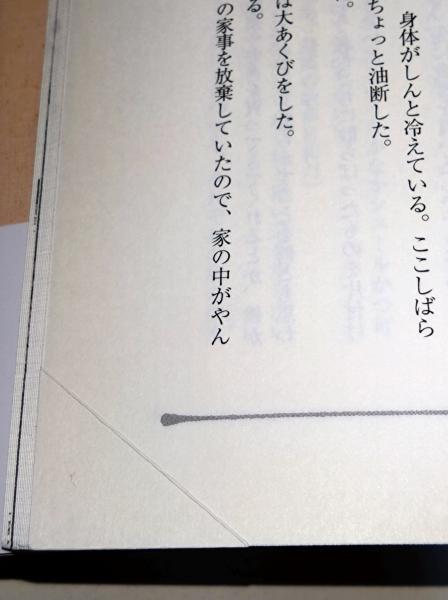 身体がしんと冷えている。ここしばら
ちょっと油断した。
。
は大あくびをした。
る。
の家事を放棄していたので、家の中がやん